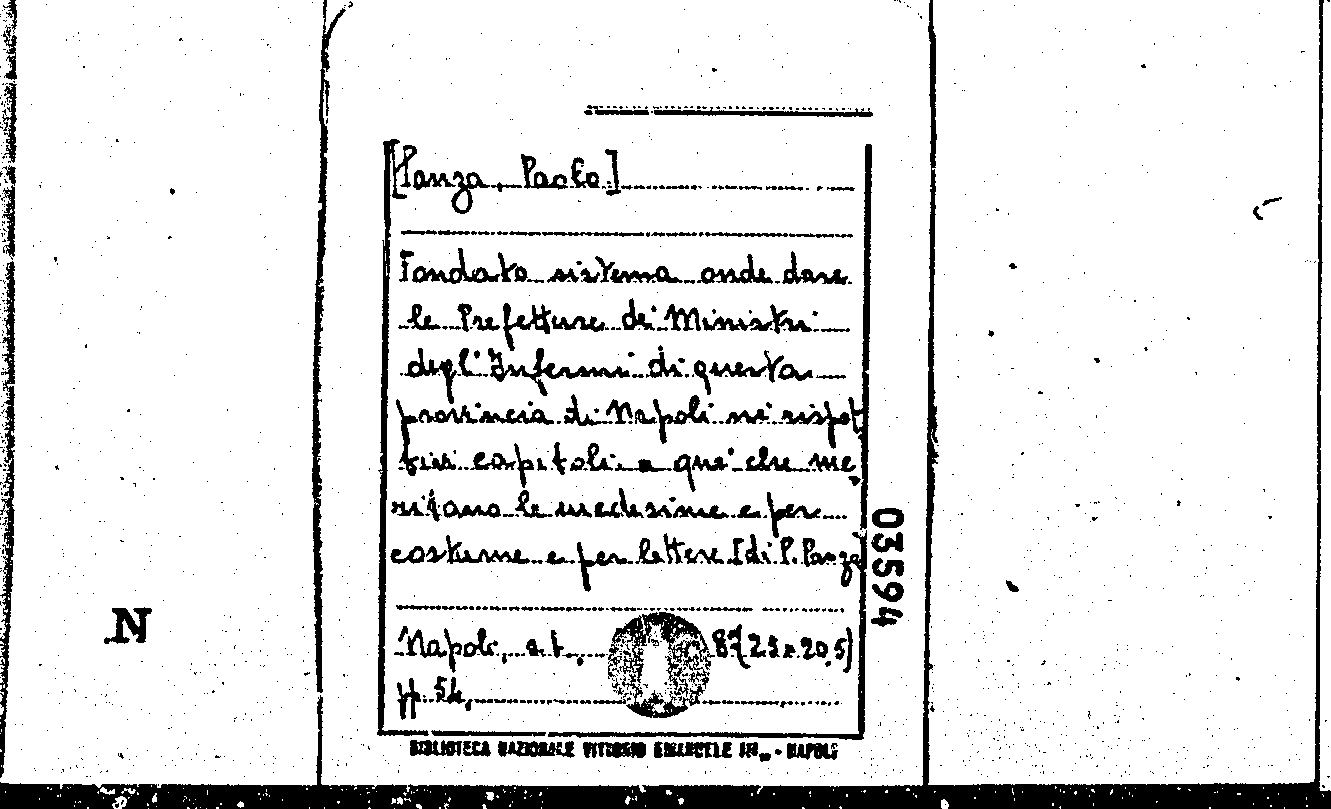 [Panza, Paolo]
Fondato sistema onde dare
le Prefetture de' Ministri
degl'Infermi di questa
provincia di Napoli ne' rispet
tivi capitoli a que' che me
ritano le medesime e per
costume e per lettere [di P. Panza]
03594
N
Napoli, s.t., 8°(23x20,5)
pp. 54,
BIBLIOTECA NAZIONALE VITTORIO EMANUELE III - NAPOLI